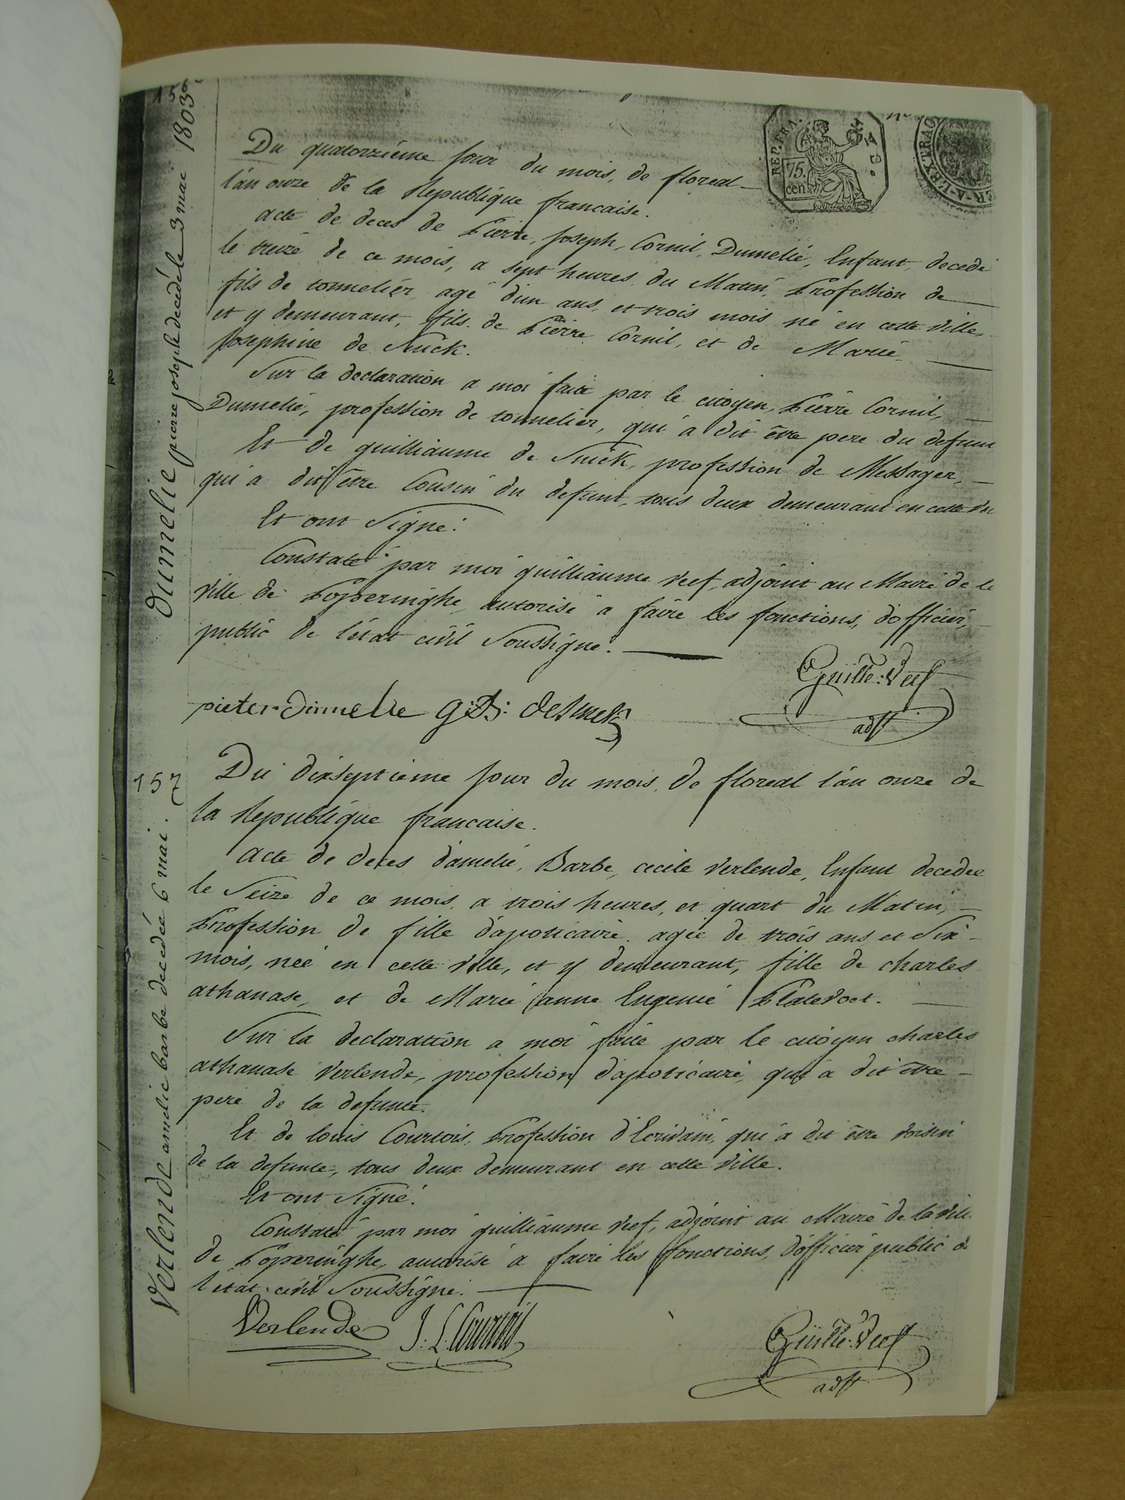 156
Dumelie pierre joseph decédé le 3 mai 1803
REP. FRA.
75.
cen.
A L'EXTRAO
Du quatorzième jour du mois, de floreal
l'an onze de la Republique francaise.
acte de deces de Pierre, Joseph, Cornil, Dumelié, Enfant, decedé
le treize de ce mois, a sept heures du Matin, Profession de
fils de tonnelier, agé d'un ans, et trois mois né en cette ville,
et y demeurant, fils de Pierre Cornil, et de Marie
Josephine de Smick.
Sur la declaration a moi faite par le citoyen, Pierre Cornil,
Dumelié, profession de tonnelier, qui a dit être pere du defunt
Et de guilliaume de Smick, profession de Messager,
qui a dit être Cousin du defunt, tous deux demeurant en cette vil
Et ont Signé:
Constaté par moi guilliaume Veef, adjoint au Maire de la
ville de Poperinghe, autorisé a faire les fonctions, d'officier,
public de l'état civil Soussigné.
pieter dumelie
Guille: Veef
adjt
157
Verlende amelie barbe decedée 6 mai.
Du dixseptieme jour du mois, de floreal l'an onze de
la Republique francaise.
acte de deces d'amelié, Barbe, cecile Verlende, Enfant decedée
le Seize de ce mois, a trois heures, et quart du Matin,
Profession de fille d'apoticaire, agée de trois ans et Six
mois, née en cette ville, et y demeurant, fille de charles
athanase, et de Marie anne Eugenie Platevoet.
Sur la declaration a moi faite par le citoyen charles
athanase Verlende, profession d'apoticaire, qui a dit être
pere de la defunte.
Et de louis Courtois, Profession d'Ecrivain, qui a dit être voisin
de la defunte, tous deux demeurant en cette ville.
Et ont Signé.
Constaté par moi guilliaume Veef, adjoint au Maire de la vill
de Poperinghe, autorisé a faire les fonctions, d'officier public de
l'etat civil Soussigné.
Verlende J: L: Courtois
Guille: Veef
adjt